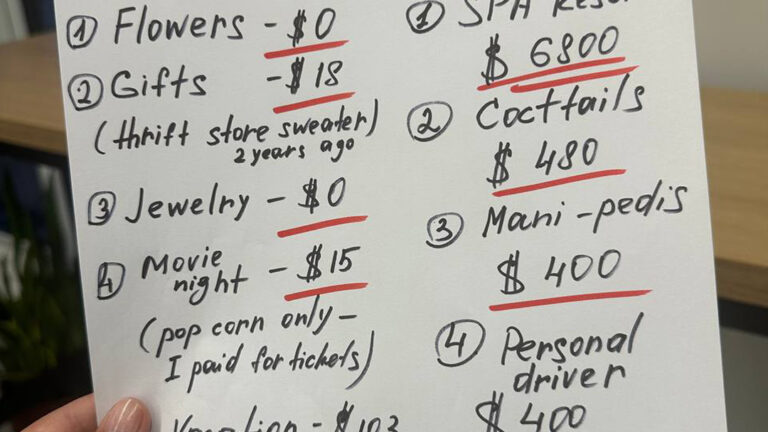 ① Flowers - $0
② Gifts - $18
(thrift store sweater)
2 years ago
③ Jewelry - $0
④ Movie
night - $15
(pop corn only -
I paid for tickets)
- $103
① SPA
$ 6800
② Cocttails
$ 480
③ Mani-pedis
$ 400
④ Personal
driver
$ 400